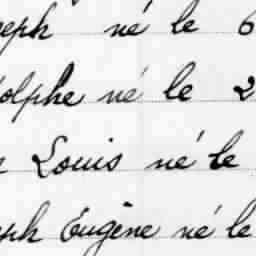 seph né le 6
dolphe né le 2
Louis né le
eph Eugène né le